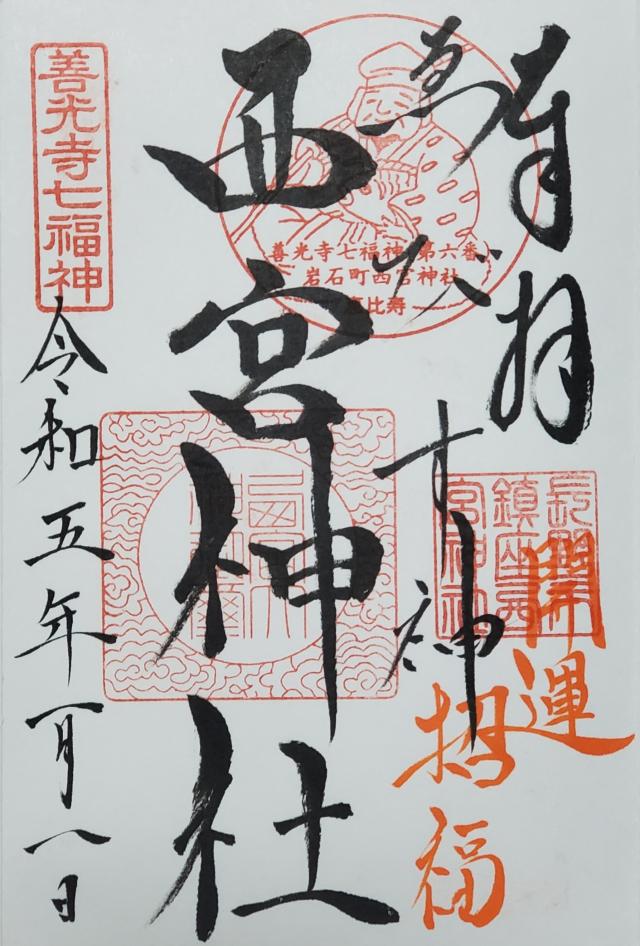 奉拝
ゑびす神
開運
招福
長野市
鎮座西
宮神社
善光寺七福神 第六番
岩石町西宮神社
恵比寿
西宮神社
善光寺七福神
令和五年一月八日